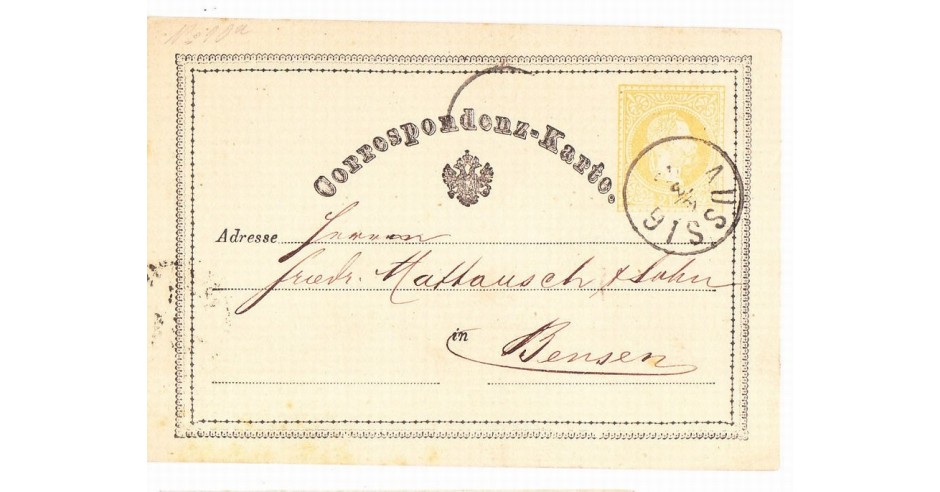 Correspondenz-Karte.
AUSSIG
Adresse Herren
Friedr. Mattausch & Sohn
in
Bensen